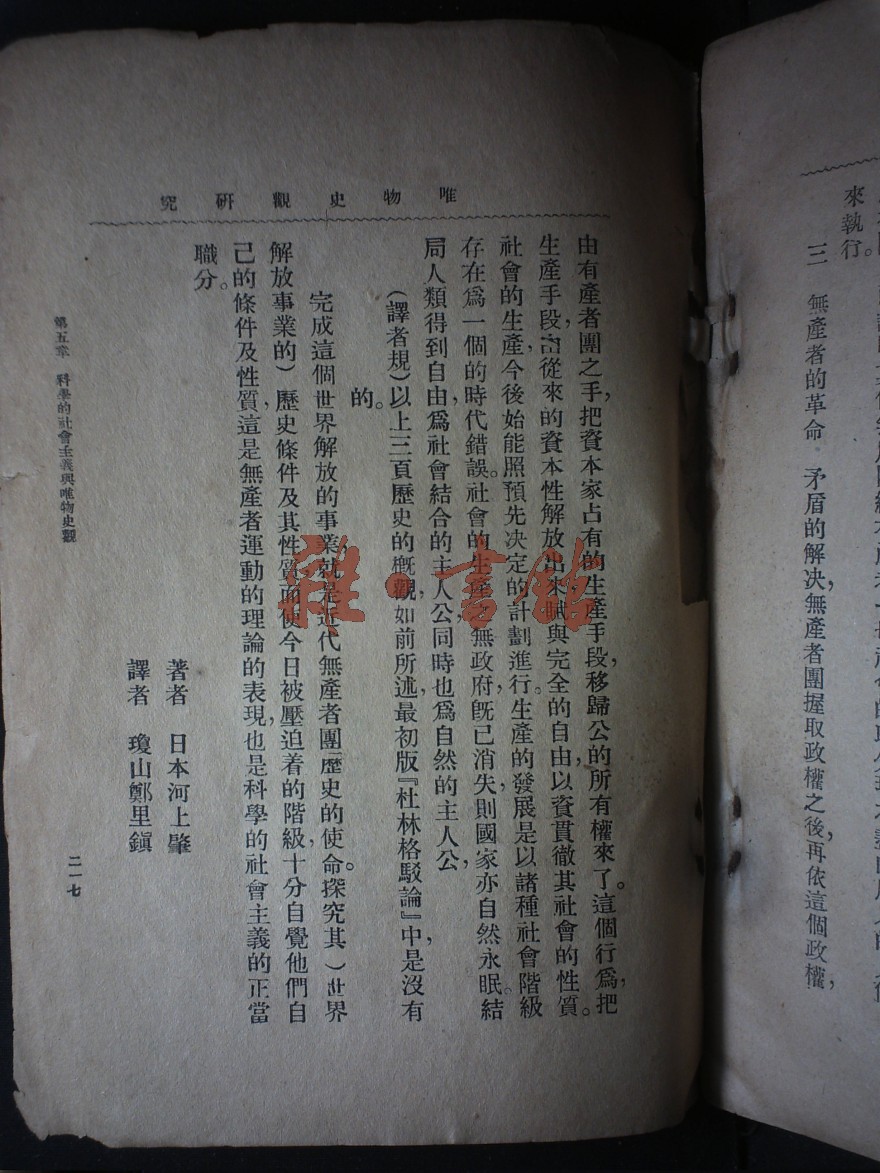 三　無產者的革命　矛盾的解決無產者團握取政權之後，再依這個政權，
來執行。
唯物史觀研究
由有產者團之手，把資本家占有的生產手段，移歸公的所有權來了。這個行爲，把
生產手段，由從來的資本性解放出來，賦與完全的自由，以資貫徹其社會的性質。
社會的生產，今後始能照預先決定的計劃進行。生產的發展，是以諸種社會階級
存在爲一個的時代錯誤。社會的生產之無政府，旣已消失，則國家亦自然永眠。結
局人類得到自由，爲社會結合的主人公，同時也爲自然的主人公，
（譯者規）以上三頁歷史的槪觀，如前所述，最初版『杜林格駁論』中，是沒有
的。
完成這個世界解放的事業，就是近代無產者團歷史的使命。探究其）世界
解放事業的）歷史條件及其性質，而使今日被壓迫着的階級，十分自覺他們自
己的條件及性質，這是無產者運動的理論的表現，也是科學的社會主義的正當
職分。
著者　日本河上肇
譯者　瓊山鄭里鎭
第五章　科學的社會主義與唯物史觀
二一七
雜·書館